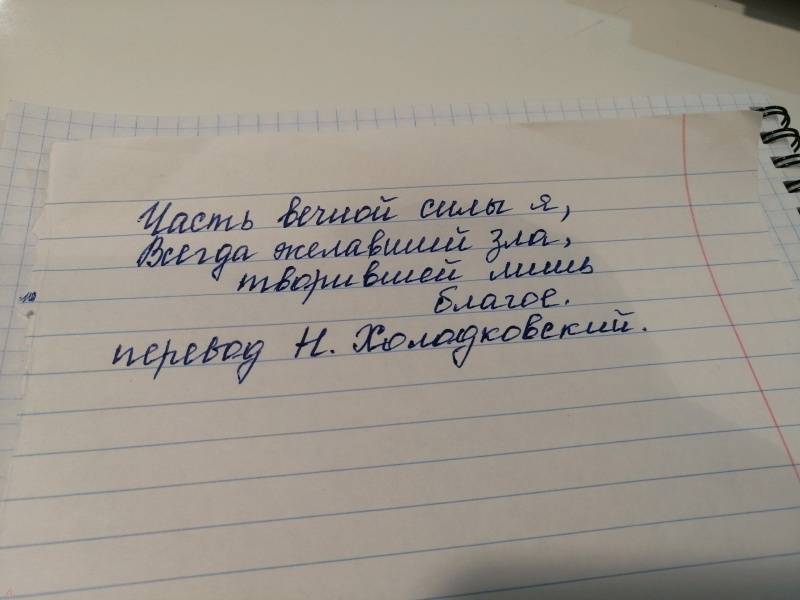 Часть вечной силы я,
Всегда желавший зла,
творившей лишь
благое.
перевод Н. Холодковский.